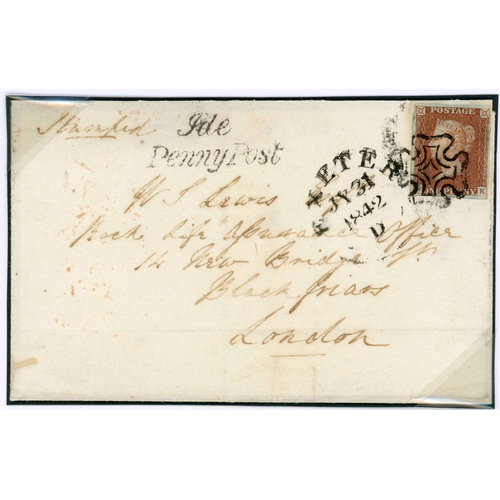 Stamped
Ide
Penny Post
POSTAGE
EXETER
JY 31
1842
D
K
W S Lewis
Rock Life Assurance Office
14 New Bridge St.
Black friars
London